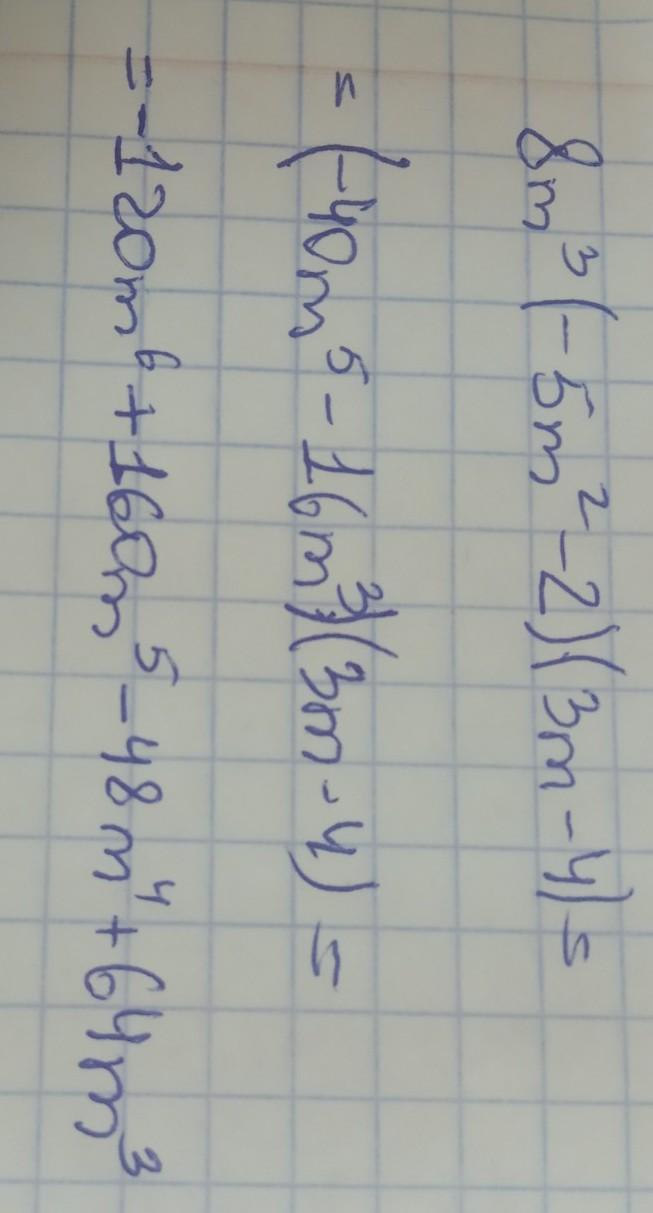 8m³(-5m²-2)(3m-4)=
=(-40m⁵-16m³)(3m-4)=
=-120m⁶+160m⁵-48m⁴+64m³